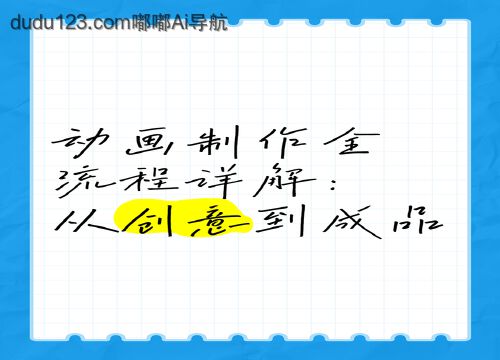 dudu123.com嘟嘟Ai导航
动画制作全
流程详解：
从创意到成品